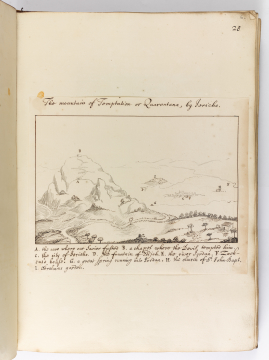 28
The mountain of Temptation or Quarantana, by Jericho.
A. the cave where our Savior fasted B. a chapel where the Devil tempted him
C. the city of Jericho. D. the fountain of Elisha E. the river Jordan, F Zach-
eus house. G a great spring running into Jordan. H the church of St John Bapt.
I. Abrahams garden.